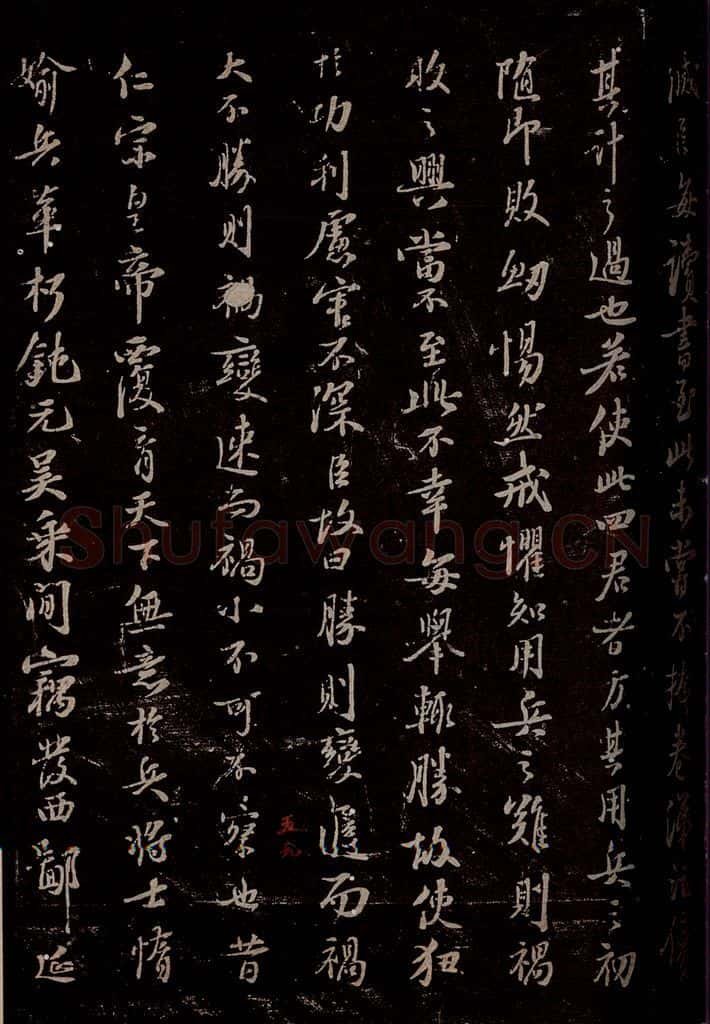 滅臣每讀書至此未嘗不掩卷泣傷
其計之過也若使此四君者方其用兵之初
隨即敗衂惕然戒懼知用兵之難則禍
敗之興當不至此不幸每舉輒勝故使狃
於功利慮害不深臣故曰勝則變遲而禍
大不勝則禍變速而禍小不可不察也昔
仁宗皇帝覆育天下無意於兵將士惰
媮兵革朽鈍元昊乘間竊發西鄙延
五九
Shufawang.CN